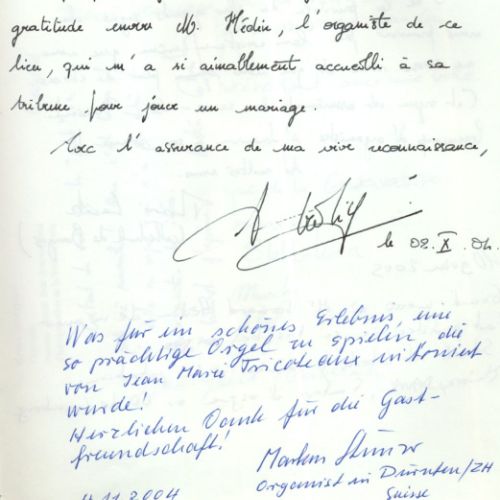 gratitude envers M. Hédin, l'organiste de ce
lieu, qui m'a si aimablement accueilli à sa
tribune pour jouer un mariage.
Avec l'assurance de ma vive reconnaissance,
le 02. X. 04.
Was für ein schönes Erlebnis eine
so prächtige Orgel zu spielen die
von Jean Marie Tricoteaux intoniert
wurde!
Herzlichen Dank für die Gast-
freundschaft!
Markus
Organist in Dürnten/ZH
Suisse
4.11.2004